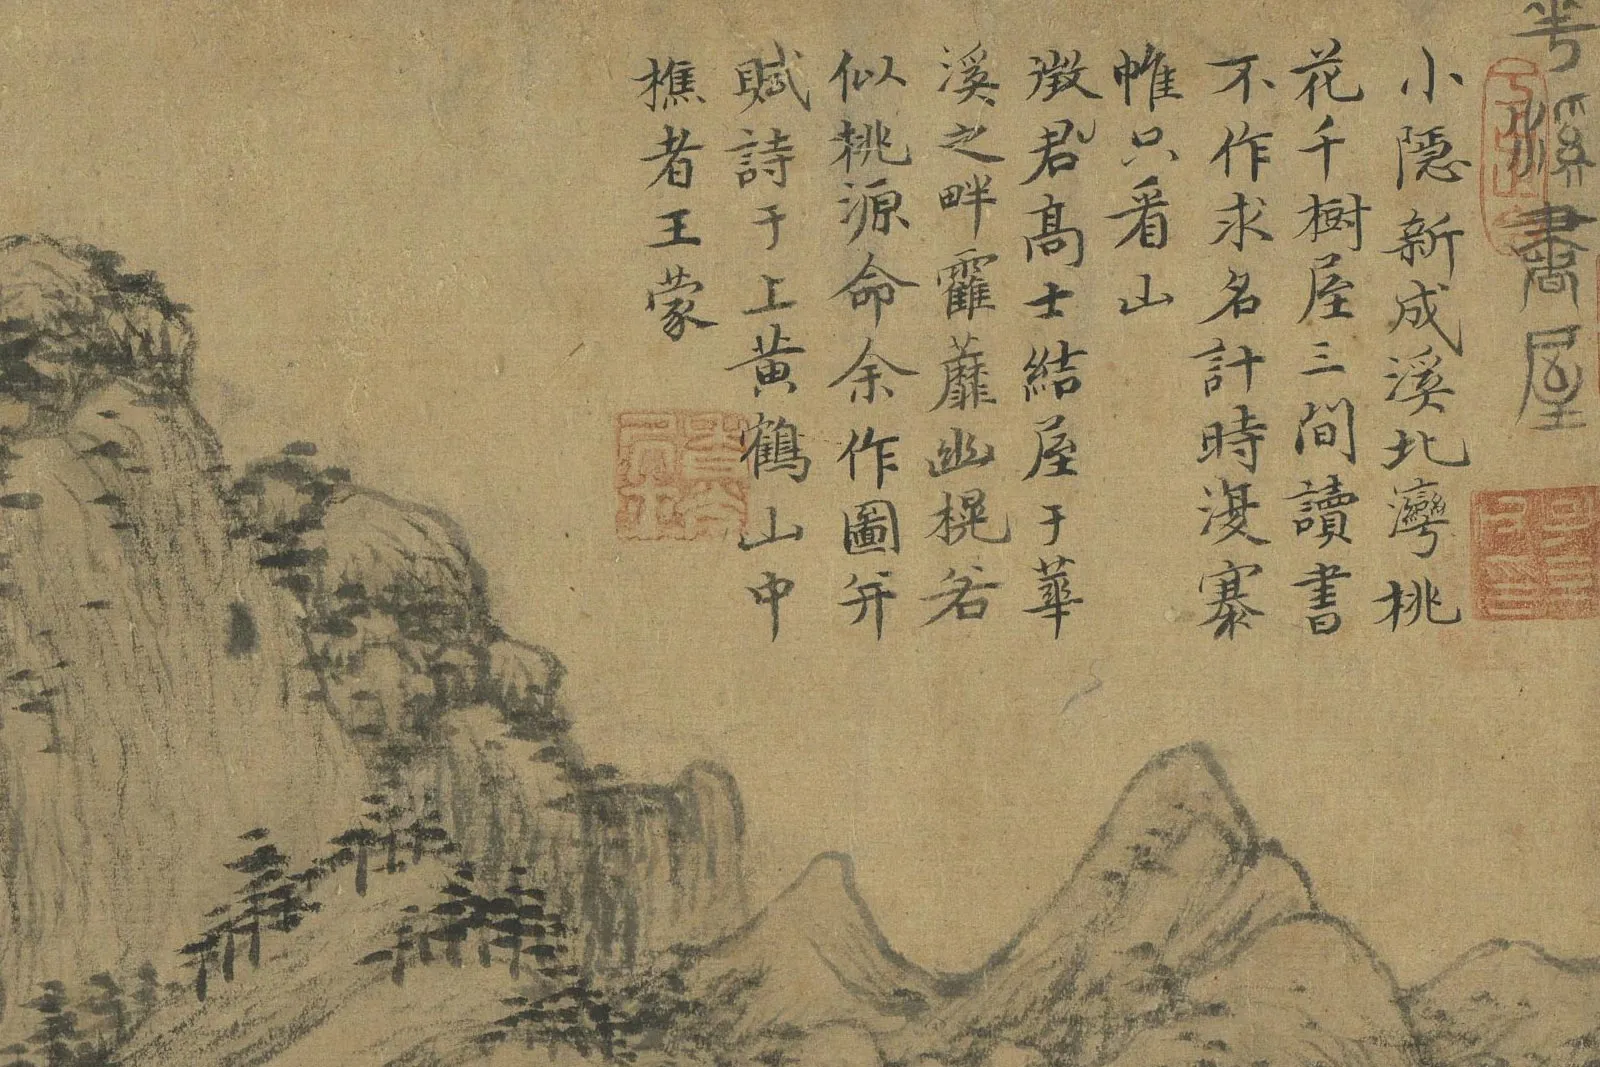 華溪書屋
小隱新成溪北灣桃
花千樹屋三間讀書
不作求名計時復褰
帷只看山
徵君高士結屋于華
溪之畔霍蘼幽榥若
似桃源命余作圖并
賦詩于上黃鶴山中
樵者王蒙